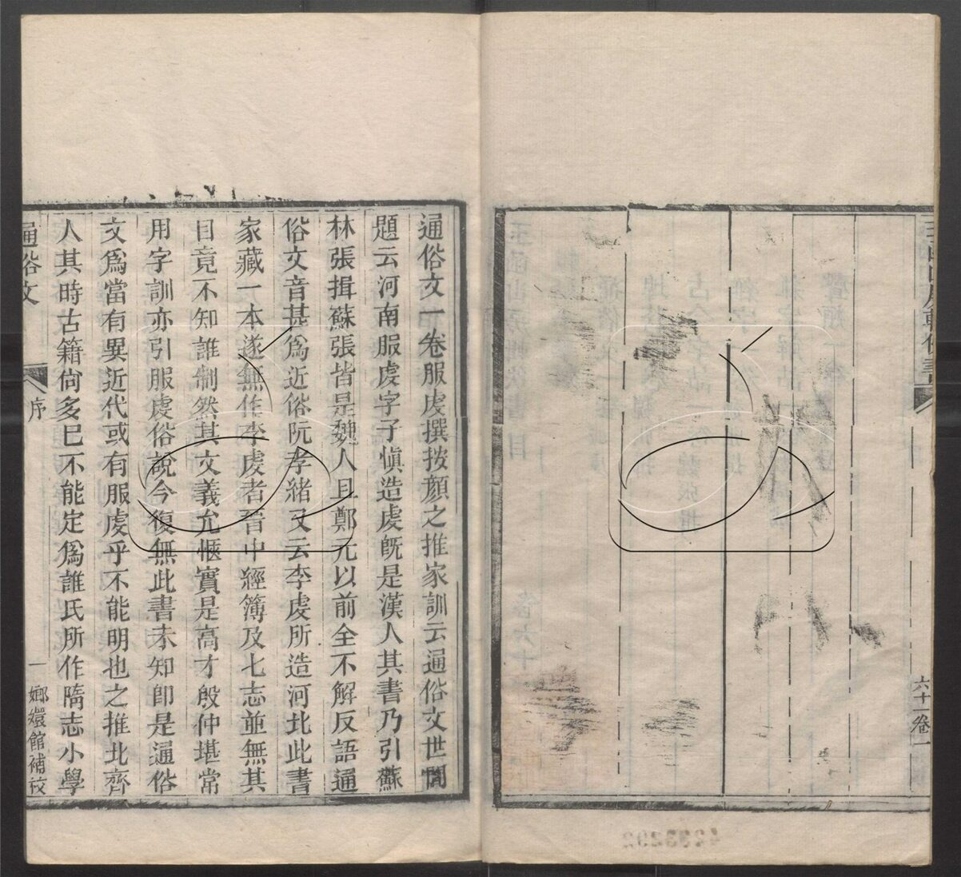 六十一卷一
通俗文一卷服虔撰按顏之推家訓云通俗文世間
題云河南服虔字子愼造虔旣是漢人其書乃引蘇
林張揖蘇張皆是魏人且鄭元以前全不解反語通
俗文音甚爲近俗阮孝緒又云李虔所造河北此書
家藏一本遂無作李虔者晉中經簿及七志並無其
目竟不知誰制然其文義允愜實是高才殷仲堪常
用字訓亦引服虔俗說今復無此書未知卽是通俗
文爲當有異近代或有服虔乎不能明也之推北齊
人其時古籍尙多已不能定爲誰氏所作隋志小學
通俗文
序
一
嫏嬛館補校